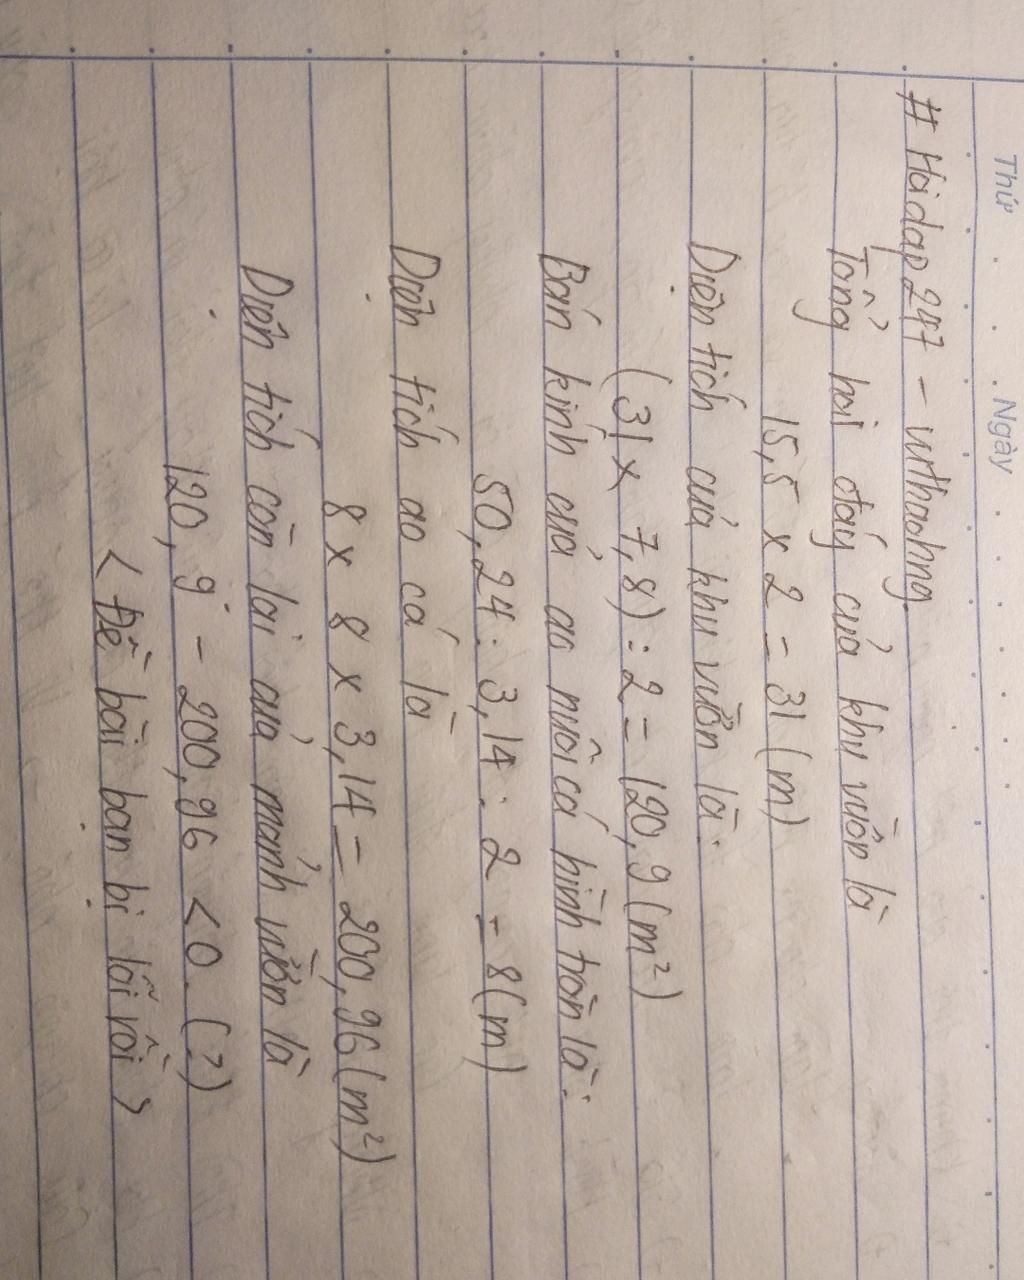 Thứ . . . Ngày . . . . .
# Hoidap247 - uthaohng
Tổng hai đáy của khu vườn là
15,5 x 2 = 31 (m)
Diện tích của khu vườn là:
(31 x 7,8) : 2 = 120,9 (m²)
Bán kính của ao nuôi cá hình tròn là:
50,24 : 3,14 : 2 = 8 (m)
Diện tích ao cá là
8 x 8 x 3,14 = 200,96 (m²)
Diện tích còn lại của mảnh vườn là
120,9 - 200,96 < 0. (?)
< Đề bài bạn bị lỗi rồi >